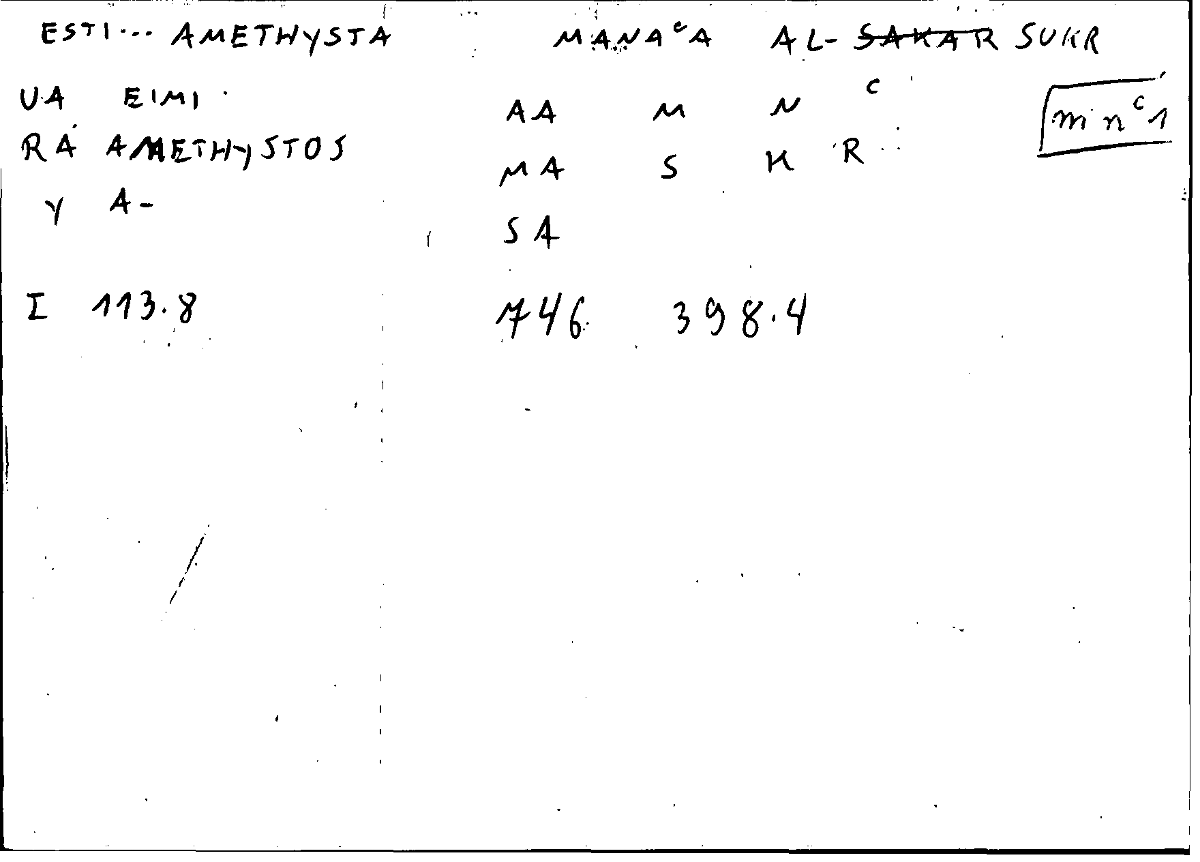 ESTI... AMETHYSTA MANAᶜA AL- SAKAR SUKR
UA EIMI AA M N ᶜ minᶜ1
RA AMETHYSTOS MA S K R
Y A-
SA
I 113.8 746 398.4